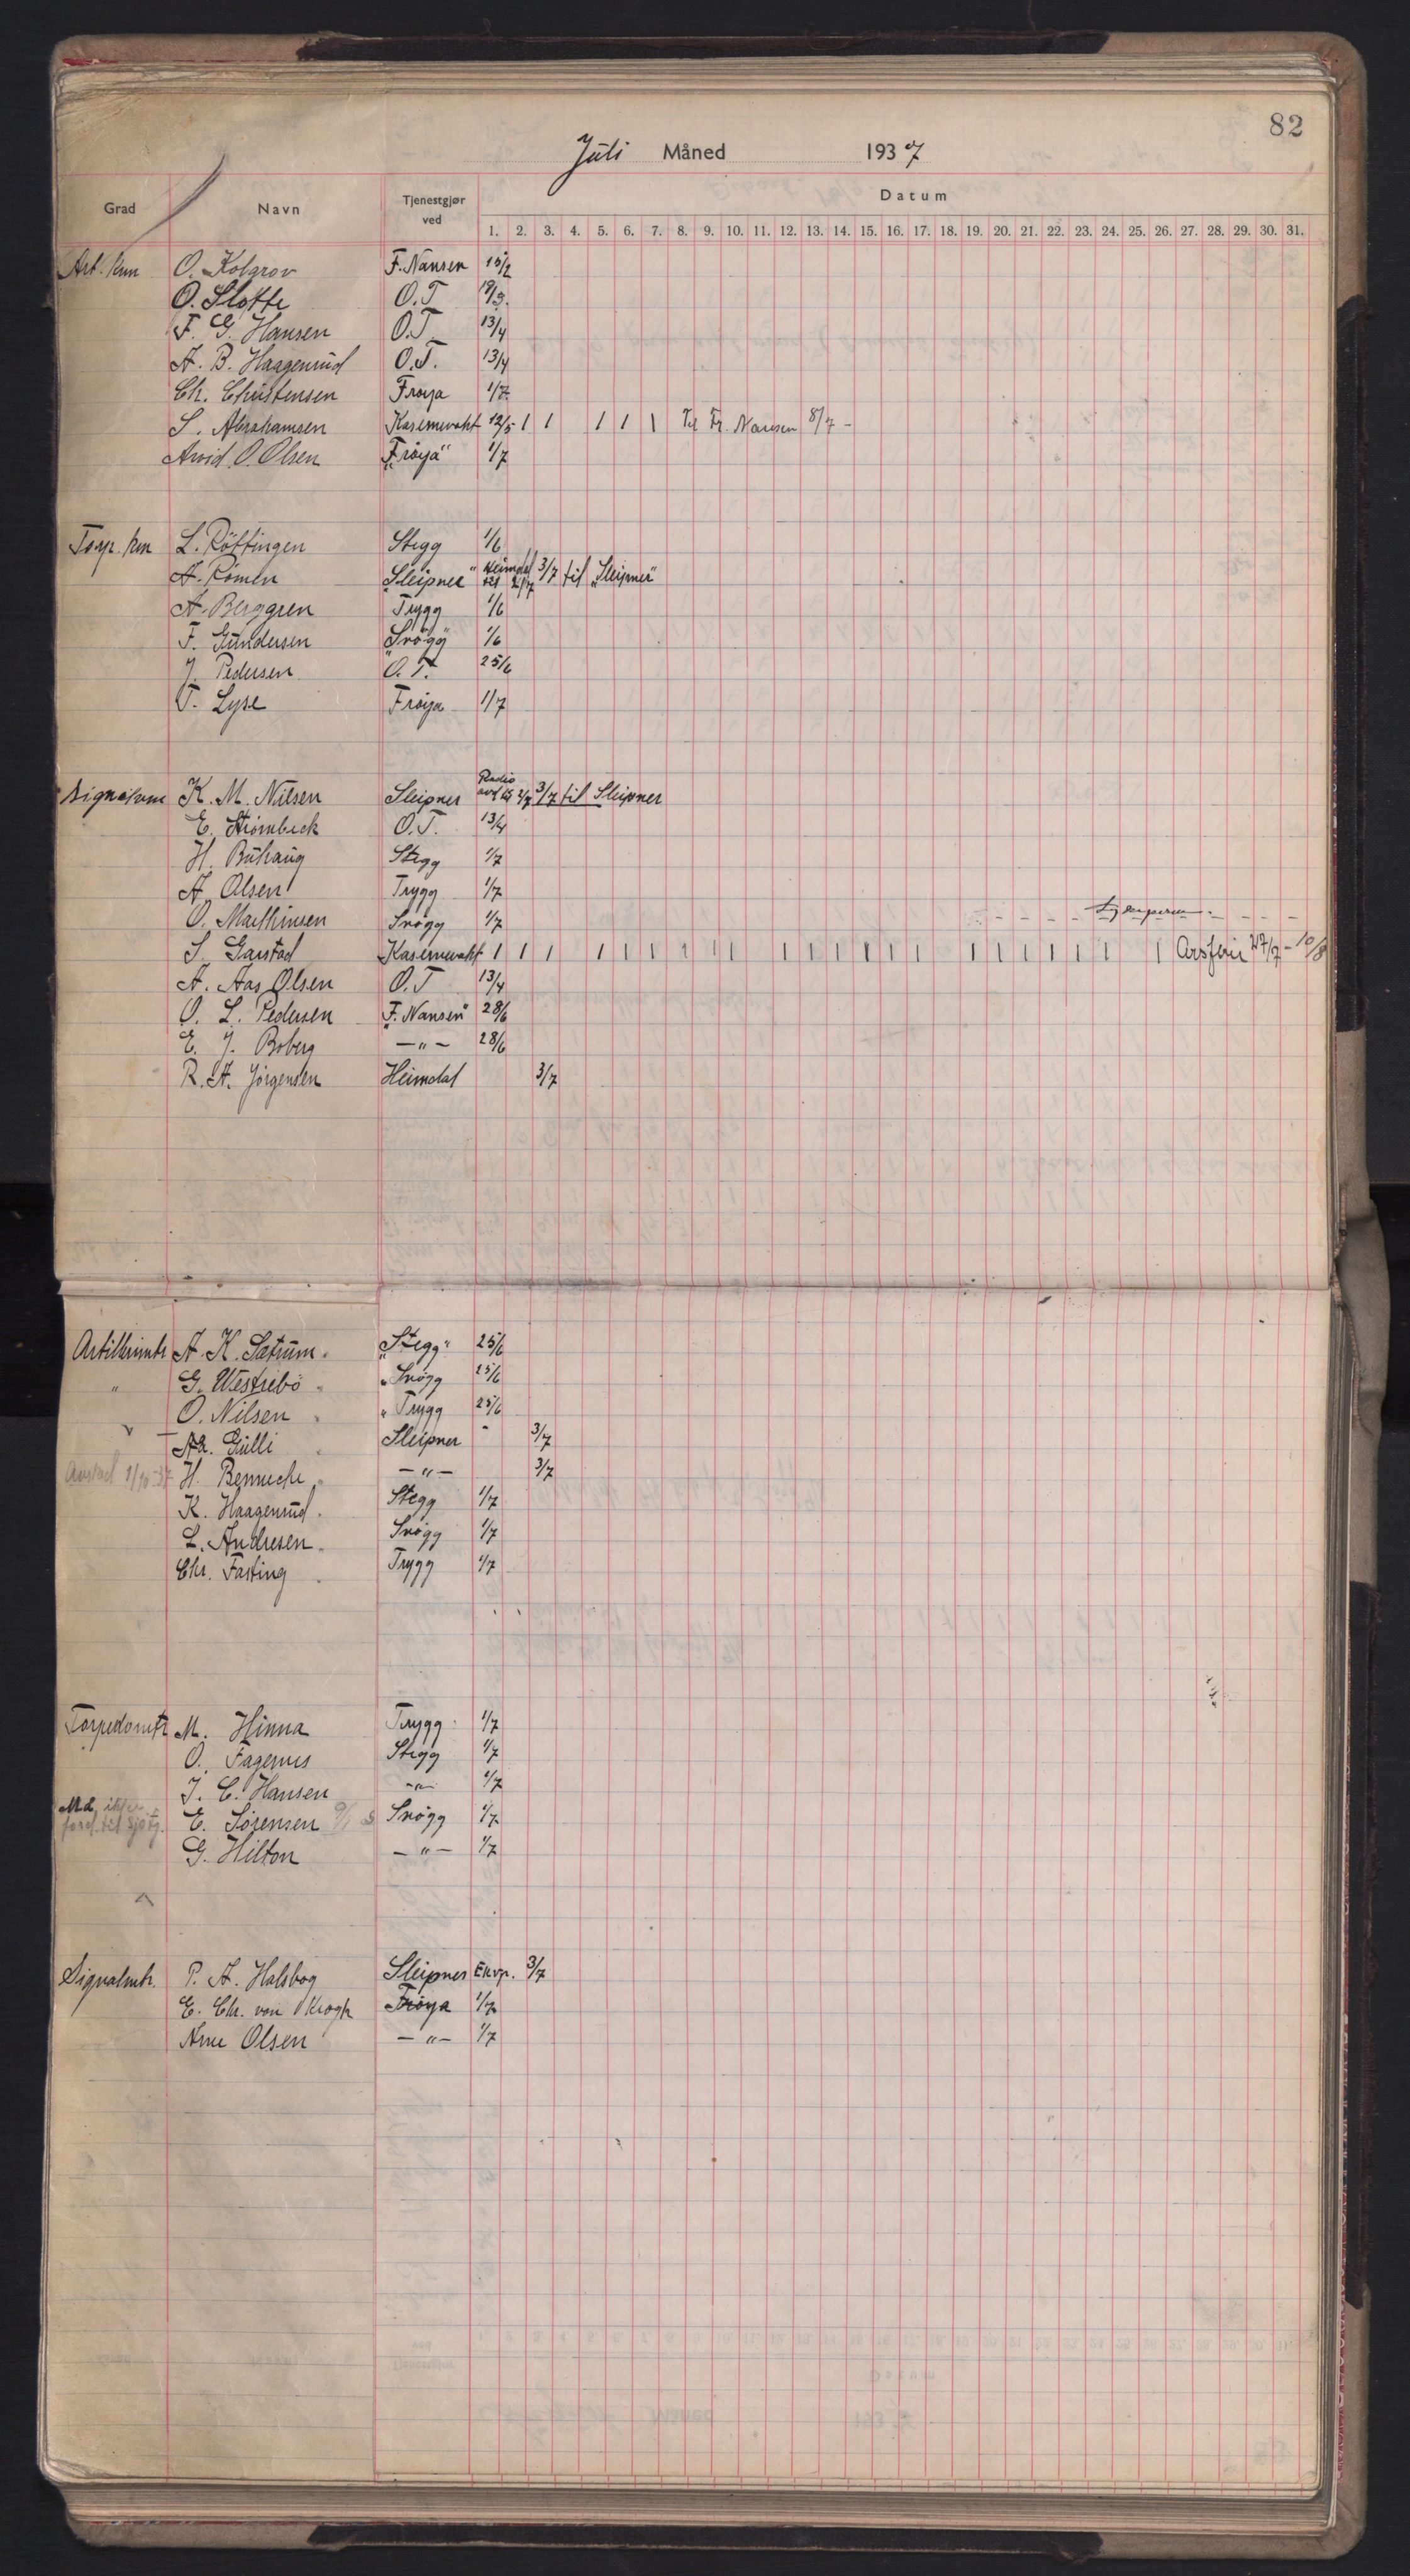 82
Juli Måned 1937
Grad Navn Tjenestgjør ved Datum
1. 2. 3. 4. 5. 6. 7. 8. 9. 10. 11. 12. 13. 14. 15. 16. 17. 18. 19. 20. 21. 22. 23. 24. 25. 26. 27. 28. 29. 30. 31.
Art. kvm O. Kolgrov F. Nansen 15/2
O. Slotte O.T 19/3.
F. G. Hansen O.T. 13/4
A. B. Haagenrud O.T. 13/4
Ch. Christensen Frøya 1/7.
S. Abrahamsen Kasernevakt 12/5 1 1 1 1 1 Til Fr. Nansen 8/7 -
Arvid O. Olsen "Frøya" 1/7
Torp. kvm L. Röttingen Stegg 1/6
A. Römen "Sleipner" Heimdal til 2/7 3/7 til "Sleipner"
A. Berggren Trygg 1/6
F. Gundersen "Snögg" 1/6
J. Pedersen O.T. 25/6
T. Lyse Frøya 1/7
Signalkvm K. M. Nilsen Sleipner Radio avd til 2/7 3/7 til Sleipner
E. Strømbeck O.T. 13/4
H. Buhaug Stegg 1/7
A. Olsen Trygg 1/7
O. Marthinsen Snøgg 1/7 - - - - - - - -
S. Garstad Kasernevakt 1 1 1 1 1 1 1 1 1 1 1 1 1 1 1 1 1 1 1 1 1 1 1 Årsferie 27/7 - 10/8
A. Aas Olsen O.T 13/4
O. L. Pedersen "F. Nansen" 28/6
E. J. Boberg — " — 28/6
R. A. Jörgensen Heimdal 3/7
Artillerimtr A. K. Sætrum. "Stegg" 25/6
" G. Westrebö " "Snögg 25/6
O. Nilsen " "Trygg 25/6
Aa. Gulli Sleipner - 3/7
Avstad 1/10-37 H. Bennecke — " — 3/7
K. Haagenrud. Stegg 1/7
L. Andresen. Snøgg 1/7
Chr. Fasting. Trygg 1/7
Torpedomtr M. Hinna Trygg 1/7
O. Fagernes Stegg 1/7
J. C. Hansen -"- 1/7
Må ikke
E. Sørensen Snøgg 1/7
G. Hilton — " — 1/7
Signalmtr. P. A. Halsbog Sleipner Ekvp. 3/7
E. Chr. von Krogh Frøya 1/7
Arne Olsen — " — 1/7